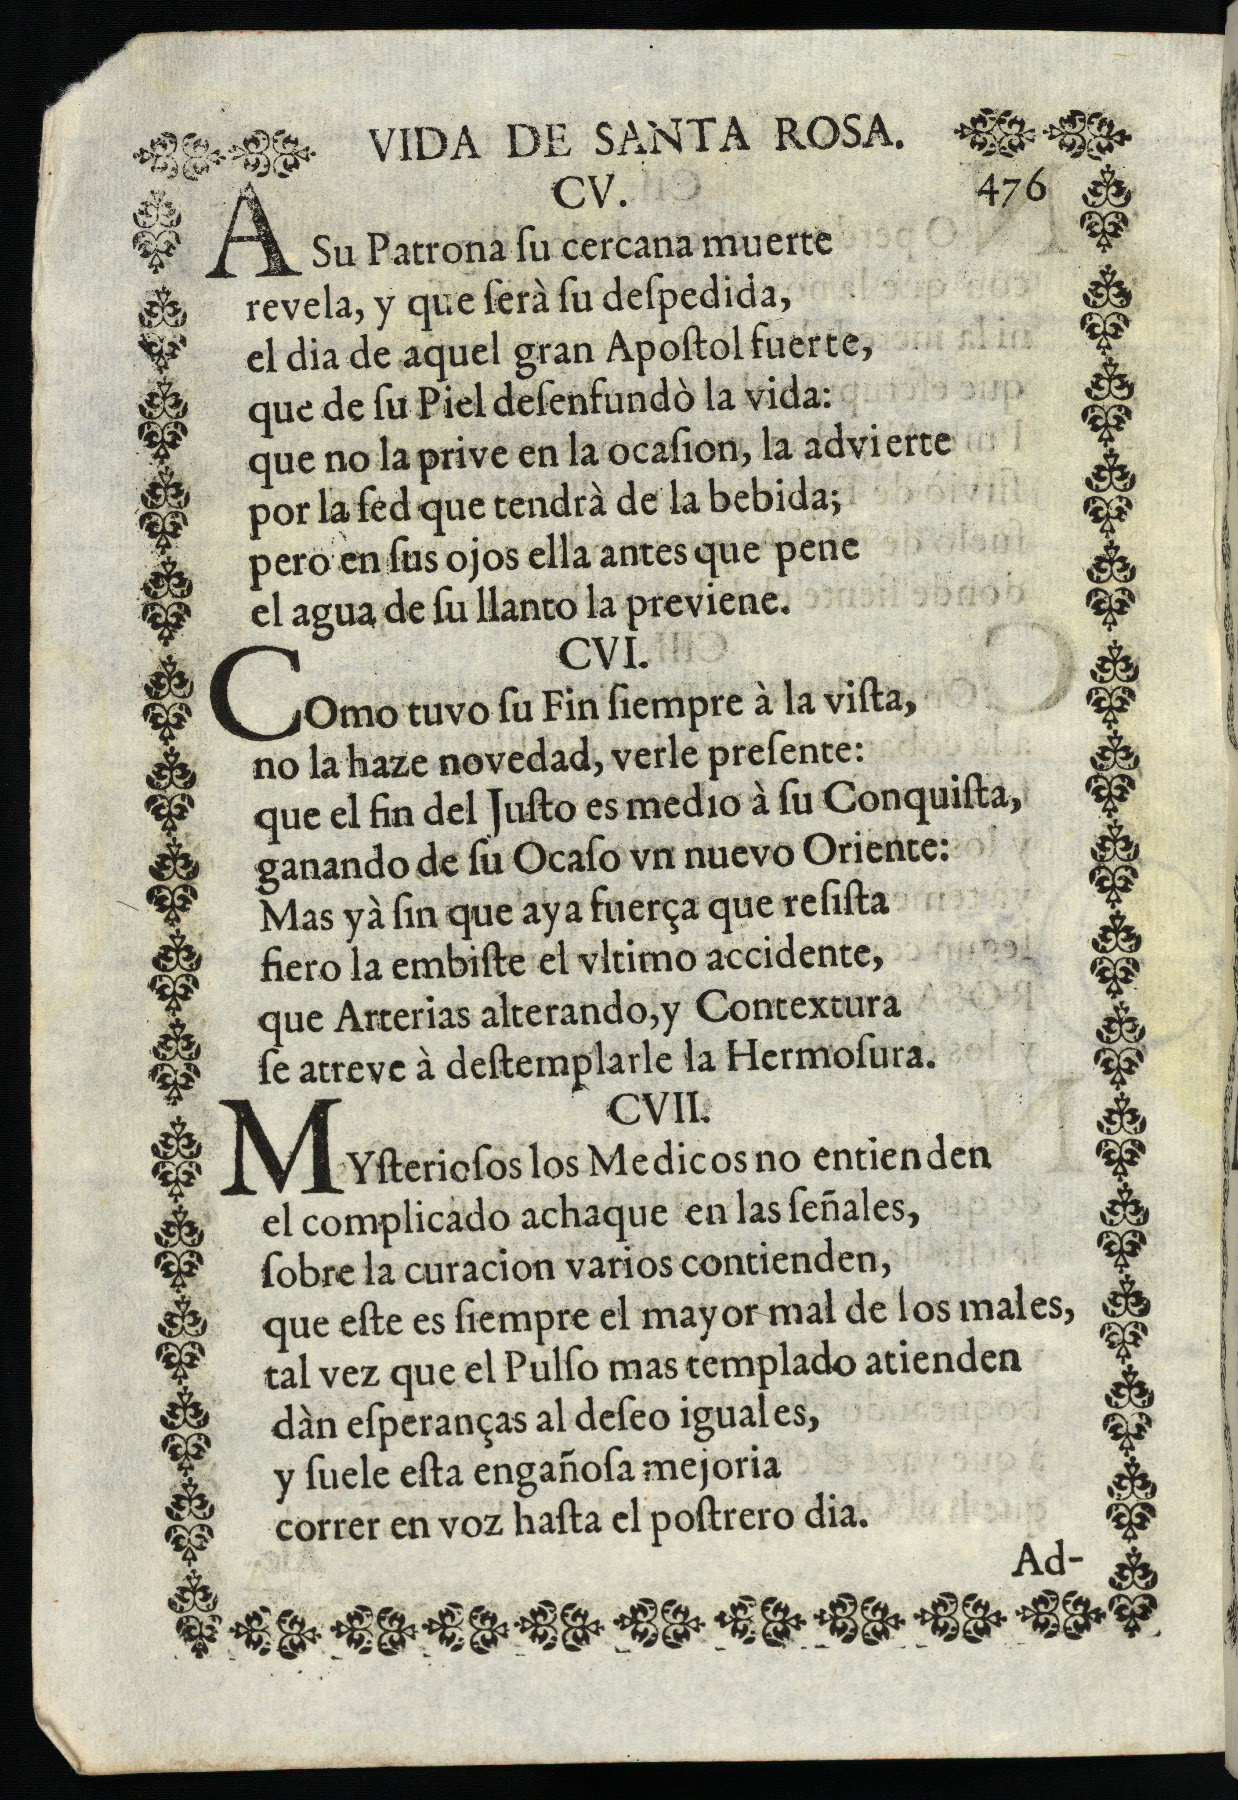 VIDA DE SANTA ROSA.
CV.
476
A Su Patrona ſu cercana muerte
revela, y que ſerà ſu deſpedida,
el dia de aquel gran Apoſtol fuerte,
que de ſu Piel deſenfundò la vida:
que no la prive en la ocaſion, la advierte
por la ſed que tendrà de la bebida;
pero èn ſus ojos ella antes que pene
el agua de ſu llanto la previene.
CVI.
COmo tuvo ſu Fin ſiempre à la viſta,
no la haze novedad, verle preſente:
que el fin del Juſto es medio à ſu Conquiſta,
ganando de ſu Ocaſo vn nuevo Oriente:
Mas yà ſin que aya fuerça que reſiſta
fiero la embiſte el vltimo accidente,
que Arterias alterando, y Contextura
ſe atreve à deſtemplarle la Hermoſura.
CVII.
MYſterioſos los Medicos no entienden
el complicado achaque en las ſeñales,
ſobre la curacion varios contienden,
que eſte es ſiempre el mayor mal de los males,
tal vez que el Pulſo mas templado atienden
dàn eſperanças al deſeo iguales,
y ſuele eſta engañoſa mejoria
correr en voz haſta el poſtrero dia.
Ad-